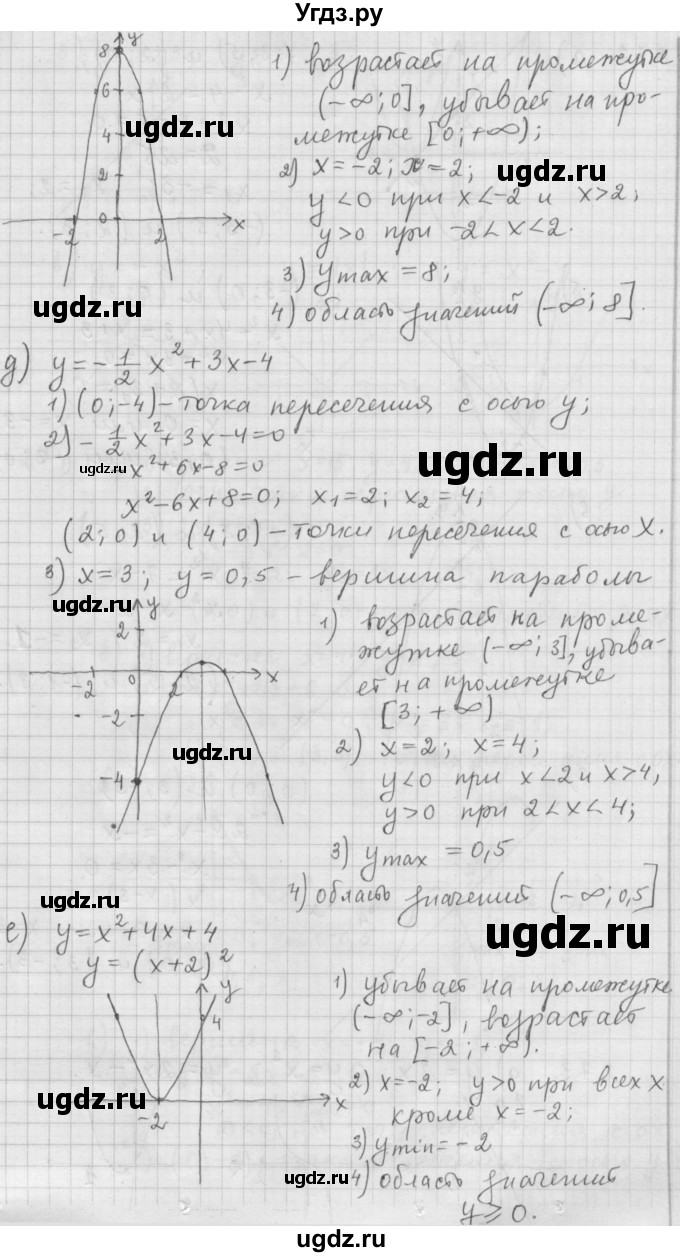 Угдз.ру
8
y
6
4
2
0
-2
2
x
1) возрастает на промежутке
(-∞;0], убывает на про-
межутке [0;+∞);
2) x=-2; x=2;
y<0 при x<-2 и x>2;
y>0 при -2<x<2.
3) ymax=8;
4) область значений (-∞;8].
ugdz.ru
ugdz.ru
ugdz.ru
ugdz.ru
д) y=-1/2x²+3x-4
1) (0;-4)-точка пересечения с осью y;
2) -1/2x²+3x-4=0
-x²+6x-8=0
x²-6x+8=0; x₁=2; x₂=4;
(2;0) и (4;0)-точки пересечения с осью X.
3) x=3; y=0,5 - вершина параболы
ugdz.ru
ugdz.ru
ugdz.ru
y
2
-2
0
2
x
-2
-4
1) возрастает на проме-
жутке (-∞;3], убыва-
ет на промежутке
[3;+∞)
2) x=2; x=4;
y<0 при x<2 и x>4,
y>0 при 2<x<4;
3) ymax=0,5
4) область значений (-∞;0,5]
ugdz.ru
ugdz.ru
ugdz.ru
е) y=x²+4x+4
y=(x+2)²
y
4
-2
x
1) убывает на промежутке
(-∞;-2], возрастает
на [-2;+∞).
2) x=-2; y>0 при всех x
кроме x=-2;
3) ymin=-2
4) область значений
y≥0.
ugdz.ru
ugdz.ru
ugdz.ru
ugdz.ru